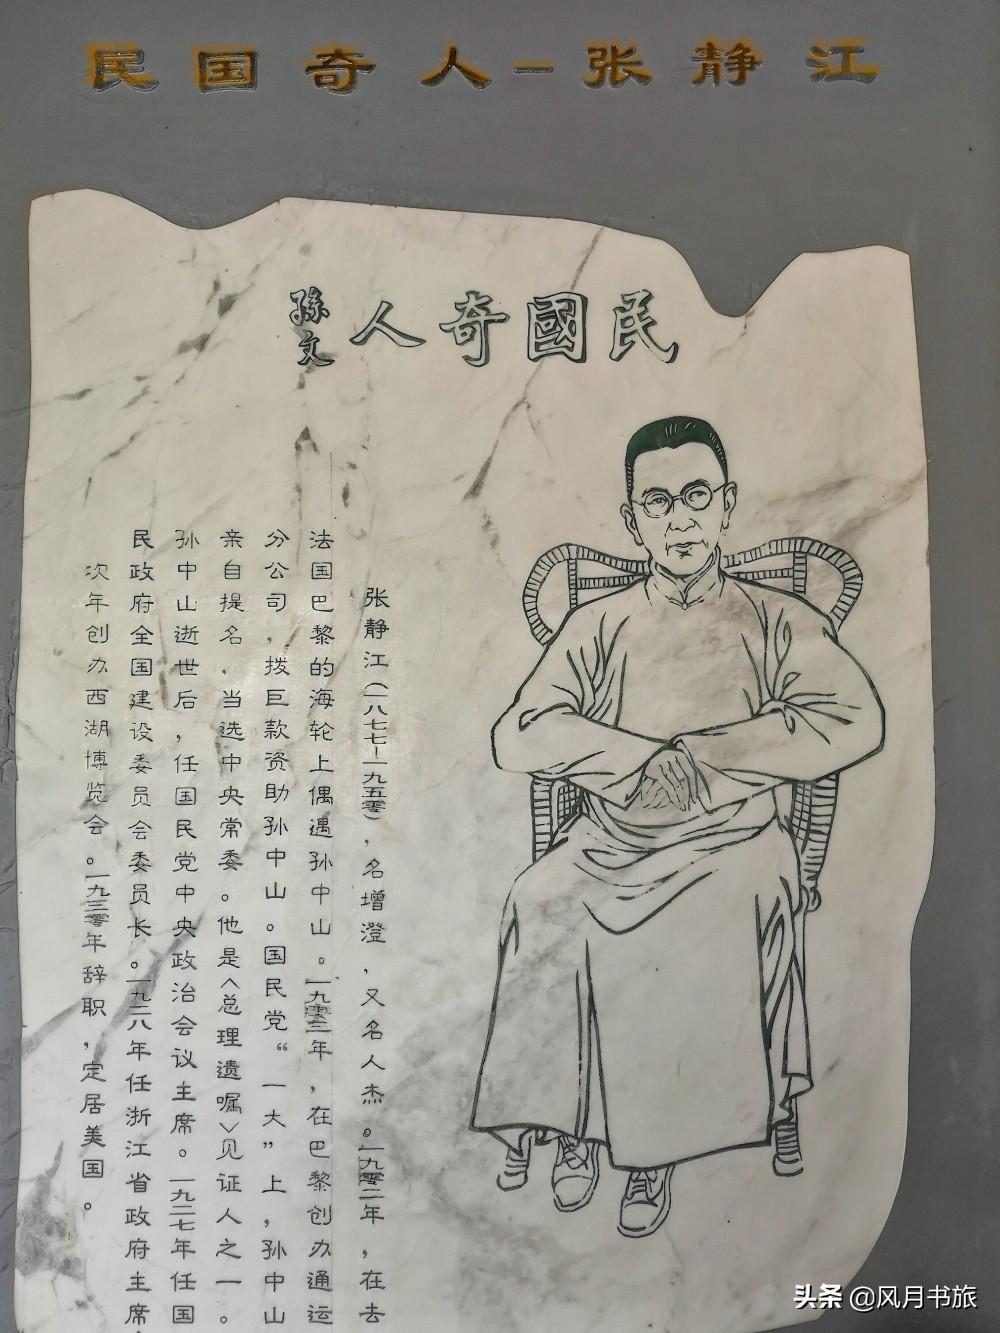 民国奇人-张静江
民國奇人 孫文
张静江(一八七七-一九五零,名增澄,又名人杰。一九零二年,在去
法国巴黎的海轮上偶遇孙中山。一九零三年,在巴黎创办通运
分公司,拨巨款资助孙中山。国民党“一大”上,孙中山
亲自提名,当选中央常委。他是<总理遗嘱>见证人之一。
孙中山逝世后,任国民党中央政治会议主席。一九二七年任国
民政府全国建设委员会委员长。一九二八年任浙江省政府主席
次年创办西湖博览会。一九三零年辞职,定居美国。
头条 @风月书旅